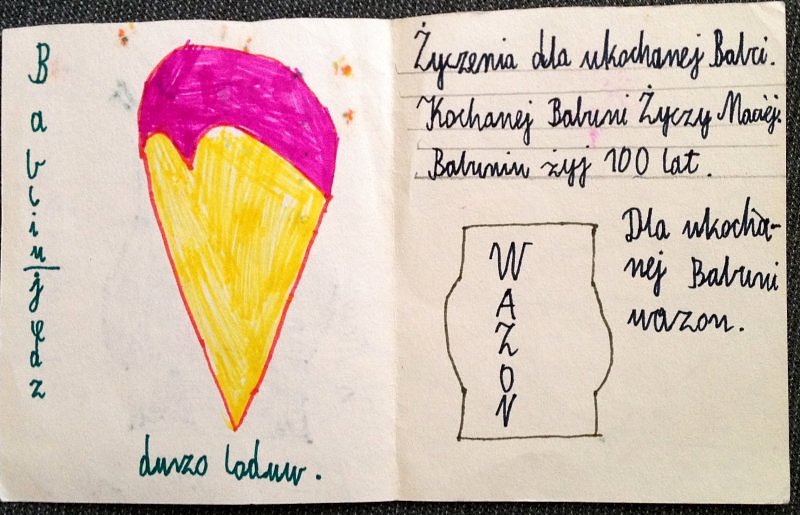 Babciu jędz
durzo loduw.
Życzenia dla ukochanej Babci.
Kochanej Babuni Życzy Maciej.
Babuniu żyj 100 lat.
WAZON
Dla ukocha-
nej Babuni
wazon.